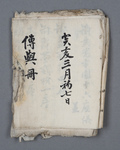 寅亥三月初七日
傳與冊